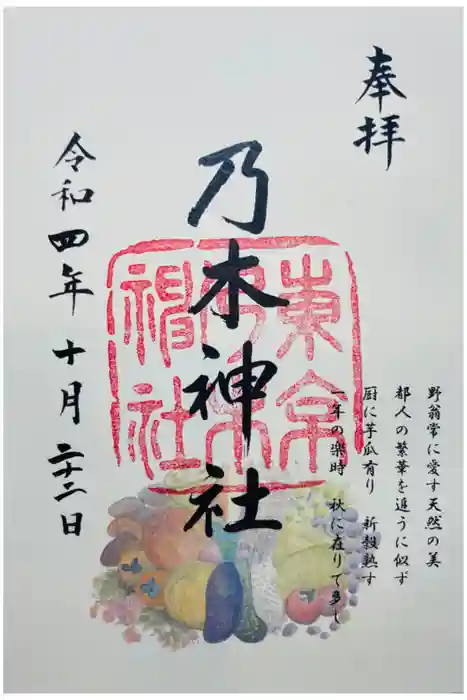 奉拝
野翁常に愛す天然の美
都人の繁華を追うに似ず
厨に芋瓜有り 新穀熟す
一年の楽時 秋に在りて多し
東京乃木神社
乃木神社
令和四年十月二十二日